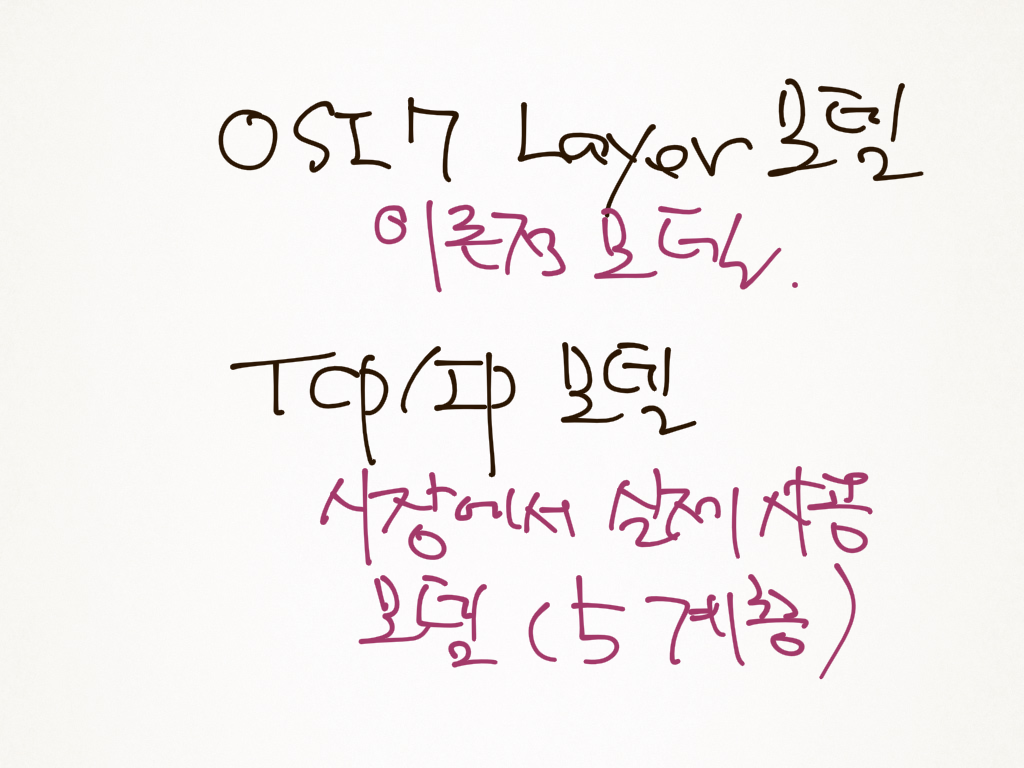 OSI 7 Layer 모델
이론적 모델.
TCP/IP 모델
시장에서 실제 사용
모델 (5계층)